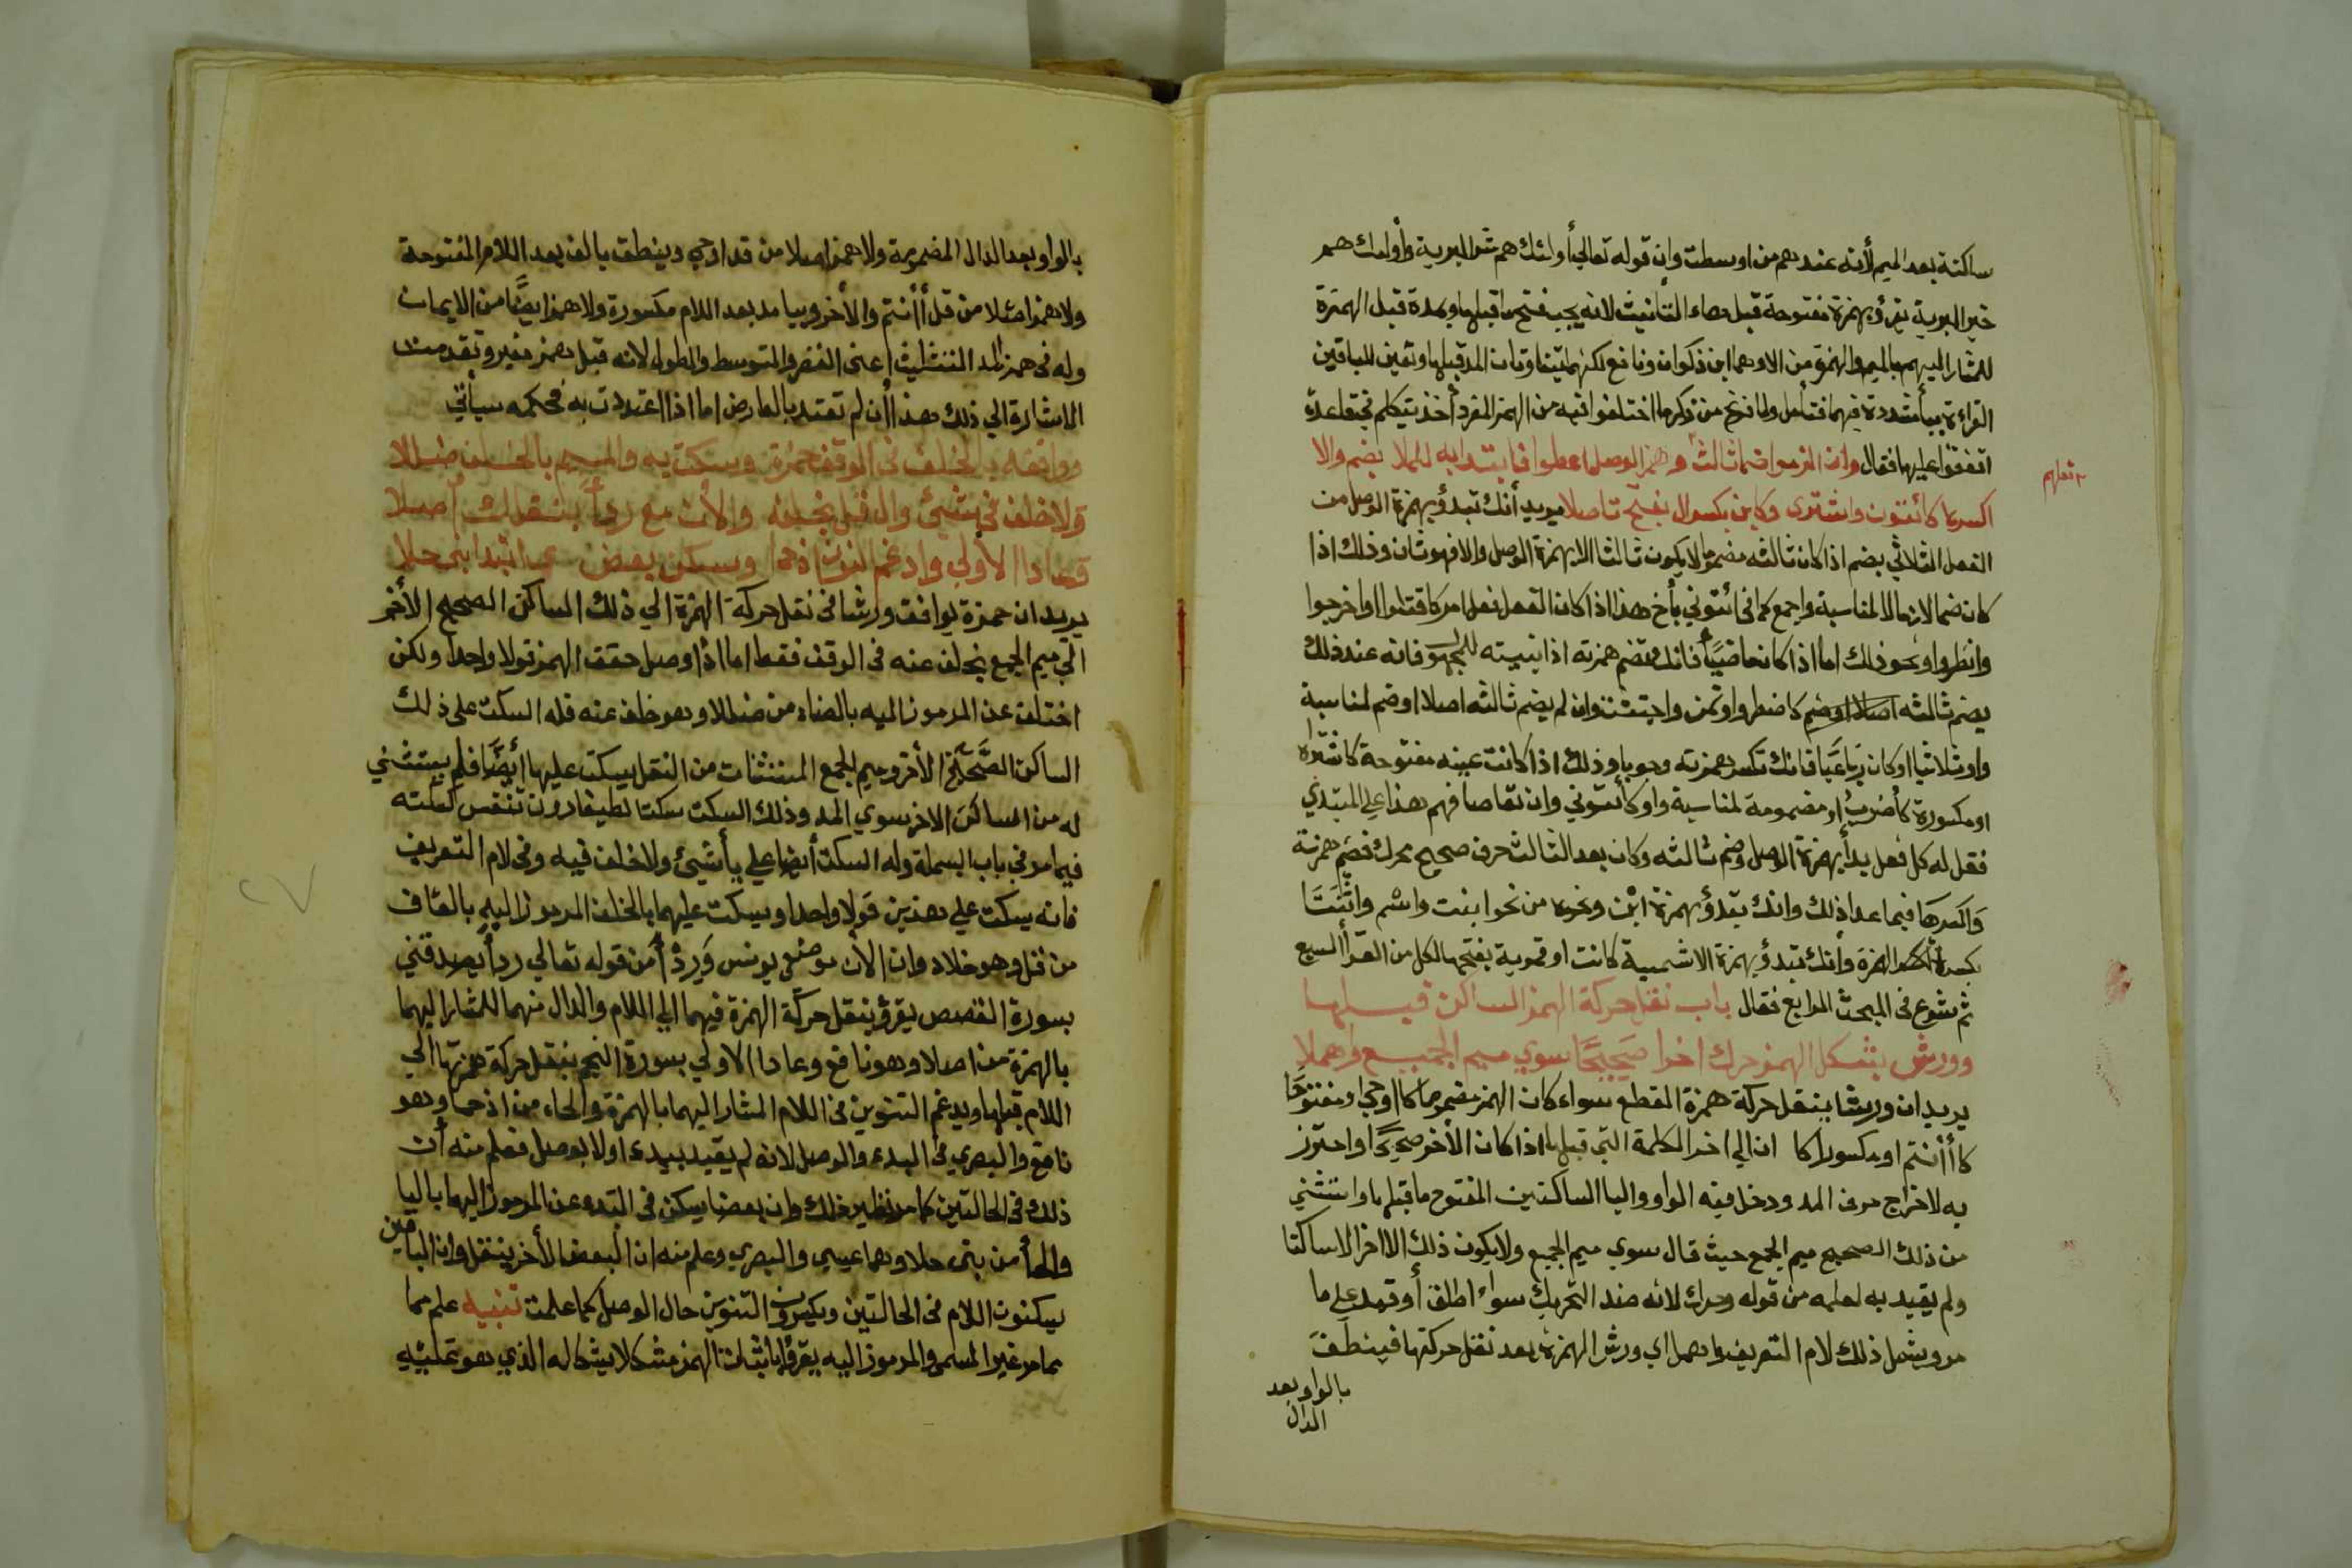 ساكنة بعد الميم لأنه عندهم من اوسطت وان قوله تعالى أولئك هم شر البرية وأولئك هم
خير البرية يقرؤ بهمزة مفتوحة قبل هاء التأنيث لانه يجب فتح ما قبلها وبمدة قبل الهمزة
للمشار اليهم بالميم والهمزة من الا وهما ابن ذكوان ونافع لكنهما يتفاوتان المد قبلها وتعين للباقين
القراءة بيأ مشددة فيهما فتأمل ولما فرغ من ذكر ما اختلفوا فيه من الهمز المفرد أخذ يتكلم في قاعدة
اتفقوا عليها فقال وان الزموا ضما ثالث وهمز الوصل اعطوا فابتدا به للملا بضم والا
اكسرها كائتون واشترى وكابن بكسر ال بفتح تاصلا يريد أنك تبدؤ بهمزة الوصل من
الفعل الثلاثي بضم اذا كان ثالثه مضموما لا يكون ثالثا الا بهمزة الوصل والا فهو ثان وذلك اذا
كان ضما لازما لا لمناسبة واجمع كما في ائتوني بأخ هذا اذا كان الفعل فعل امر كاقتلوا او اخرجوا
وانظروا ونحو ذلك اما اذا كان ماضيا فانك تضم همزته اذا بنيته للمجهول فانه عند ذلك
يضم ثالثه اصلا او ضم كاضطر واوتمن واجتثت وان لم يضم ثالثه اصلا او ضم لمناسبة
واو ثلاثيا او كان رباعيا فانك تكسر همزته وجوبا وذلك اذا كانت عينه مفتوحة كاشتراه
او مكسورة كأضرب او مضمومة لمناسبة واو كأئتوني وان تقاصا فهم هذا على المبتدي
فقل له كل فعل بدأ بهمزة الوصل وضم ثالثه وكان بعد الثالث حرف صحيح محرك فضم همزته
واكسرها فيما عدا ذلك وانك تبدؤ بهمزة ابن ونحوه من نحو ابنت واسم واثنتا
بكسر الهمزة وأنك تبدؤ بهمزة ال شمسية كانت او قمرية بفتحها لكل من القرأ السبع
ثم شرع في المبحث الرابع فقال باب نقل حركة الهمز الساكن قبلها
وورش بشكل الهمز حرك اخرا صحيحا سوي ميم الجميع واهملا
يريد ان ورشا ينقل حركة همزة القطع سواء كان الهمز مضموما كااوحي او مفتوحا
كاأنتم او مكسورا كا ان الي اخر الكلمة التي قبلها اذا كان الأخر صحيحا واحترز
به لاخراج حرف المد ودخل فيه الواو واليا الساكنين المفتوح ما قبلها واستثني
من ذلك الصحيح ميم الجمع حيث قال سوي ميم الجميع ولا يكون ذلك الا اخر الا ساكنا
ولم يقيد به لعلمه من قوله وحرك لانه ضد التحريك سواء اطلق أو قيد على ما
مر ويشمل ذلك لام التعريف واهمل اي ورش الهمزة بعد نقل حركتها فينطق
بالواو بعد
الدال
بالواو بعد الدال المضمومة ولا همز اصلا من قد اوحي وينطق بالف بعد اللام المفتوحة
ولا همز اصلا من قل أأنتم والأخر وبيا مد بعد اللام مكسورة ولا همز ايضا من الايمان
وله في همز المد التثليث اعني القصر والتوسط والطول لانه قبل همز مغير وتقدمت
الاشارة الي ذلك هذا أن لم تعتد بالعارض اما اذا اعتددت به فحكمه سيأتي
ووافقه بالخلف في الوقف حمزة ويسكت به والميم بالخلف ضللا
ولا خلف في شيئ وال قل بخلفه والآن مع ردأ بنقلك أصلا
وعادا الأولي وادغم النون اذ حما وسكن بعض عما ابتدا بنى حلا
يريد ان حمزة يوافق ورشا في نقل حركة الهمزة الي ذلك الساكن الصحيح الأخر
الي ميم الجمع بخلف عنه في الوقف فقط اما اذا وصل حقق الهمز قولا واحدا ولكن
اختلف عن المرموز اليه بالضاد من ضللا وهو خلف عنه فله السكت على ذلك
الساكن الصحيح الأخر وميم الجمع المستثنات من النقل يسكت عليها أيضا فلم يستثني
له من الساكن الاخر سوي المد وذلك السكت سكتا لطيفا دون تنفس كسكته
فيما مر في باب البسملة وله السكت أيضا علي يأ شيئ ولا خلف فيه وفي لام التعريف
فانه يسكت علي هذين قولا واحدا ويسكت عليهما بالخلف المرموز اليه بالقاف
من قل وهو خلاد وان الآن موضعي يونس وردأ من قوله تعالي ردأ يصدقني
بسورة القصص يقرؤ بنقل حركة الهمزة فيهما الي اللام والدال منهما للمشار اليهما
بالهمزة من اصلا وهو نافع وعادا الاولي بسورة النجم بنقل حركة همزتها الي
اللام قبلها ويدغم التنوين في اللام المشار اليهما بالهمزة والحاء من اذ حما وهو
نافع والبصري في البدء والوصل لانه لم يقيد ببدء اولا بوصل فعلم منه أن
ذلك في الحالتين كما مر نظير ذلك وان بعضا يسكن في البدء وعن المرموز اليهما باليا
والحأ من بنى حلا وهما عيسي والبصري وعلم منه ان البعض الأخر ينقل وان الباقين
يسكنون اللام في الحالتين ويكسرون التنوين حال الوصل كما علمت تنبيه علم مما
مما مر غير المسمى والمرموز اليه يقرؤا باثبات الهمز مشكلا بشكاله الذي هو تملية